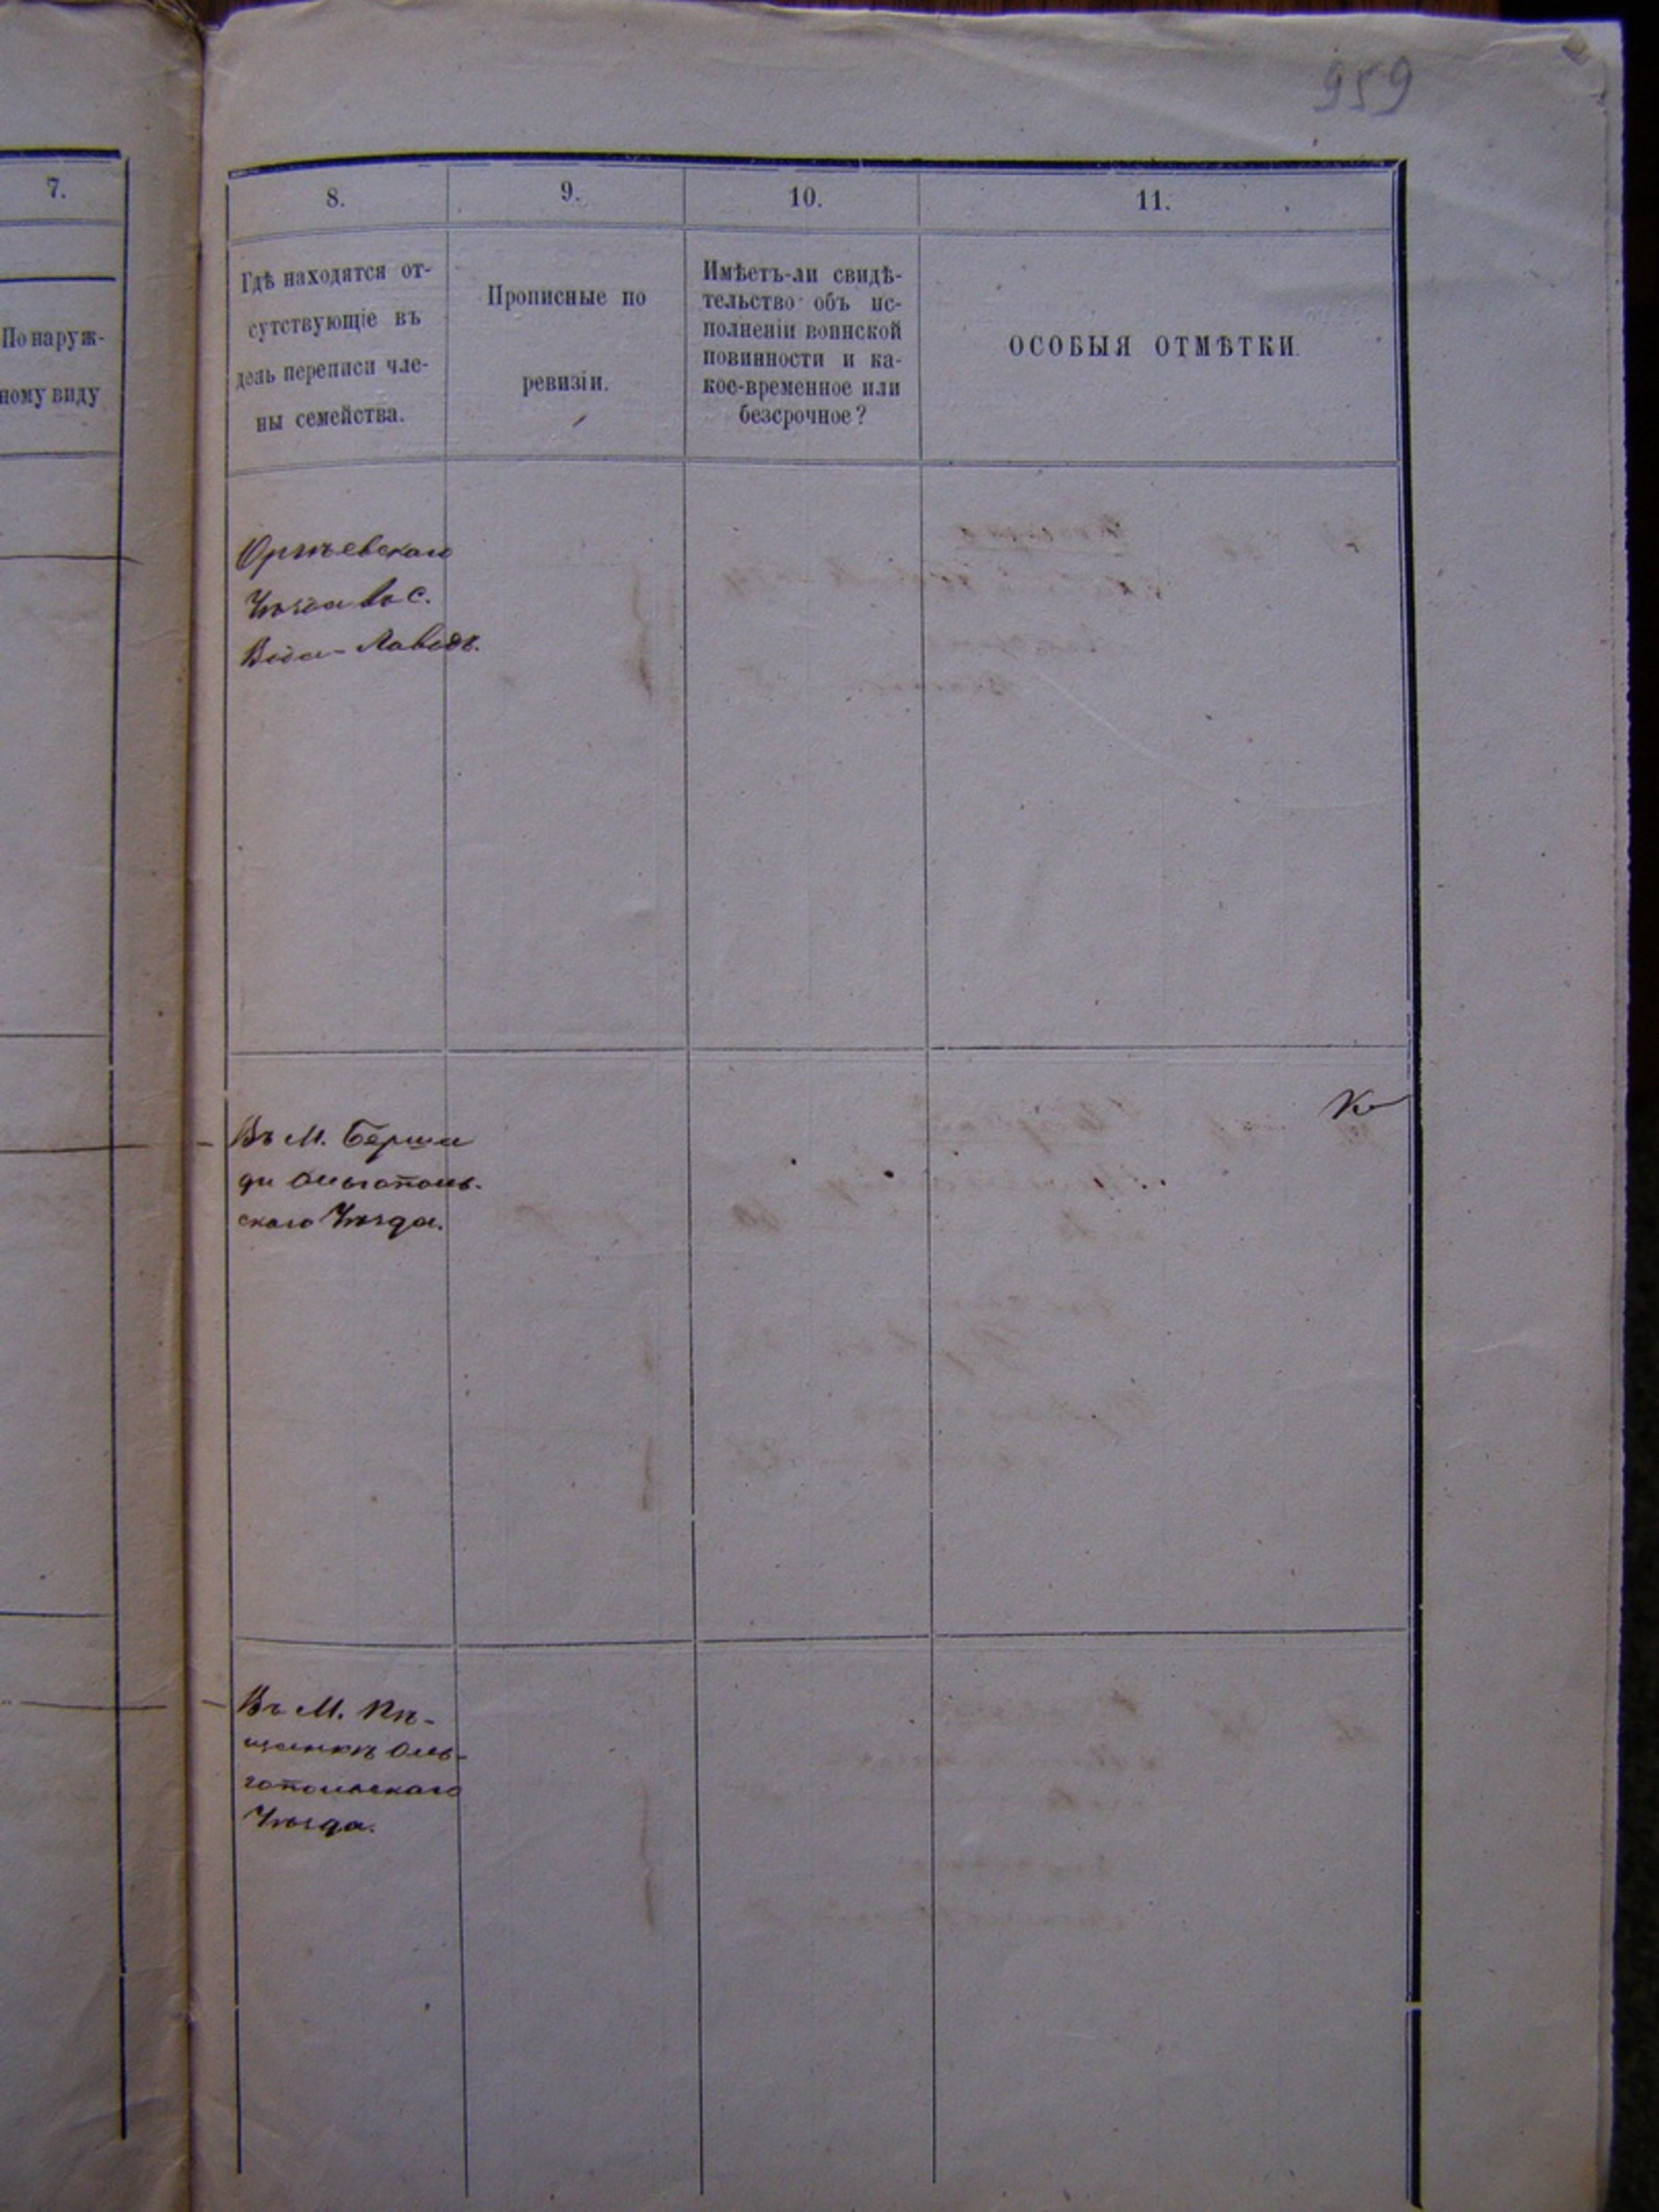 959
7.
По наруж-
ному виду
8.
9.
10.
11.
Гдѣ находятся от-
сутствующіе въ
день переписи чле-
ны семейства.
Прописные по
ревизіи.
Имѣетъ-ли свидѣ-
тельство объ ис-
полненіи воинской
повинности и ка-
кое-временное или
безсрочное?
ОСОБЫЯ ОТМѢТКИ.
Уѣзда въ с.
Въ М. Берша
ди Ольгополь-
скаго Уѣзда.
Въ М. Пѣ-
щанкѣ Оль-
гопольскаго
Уѣзда.